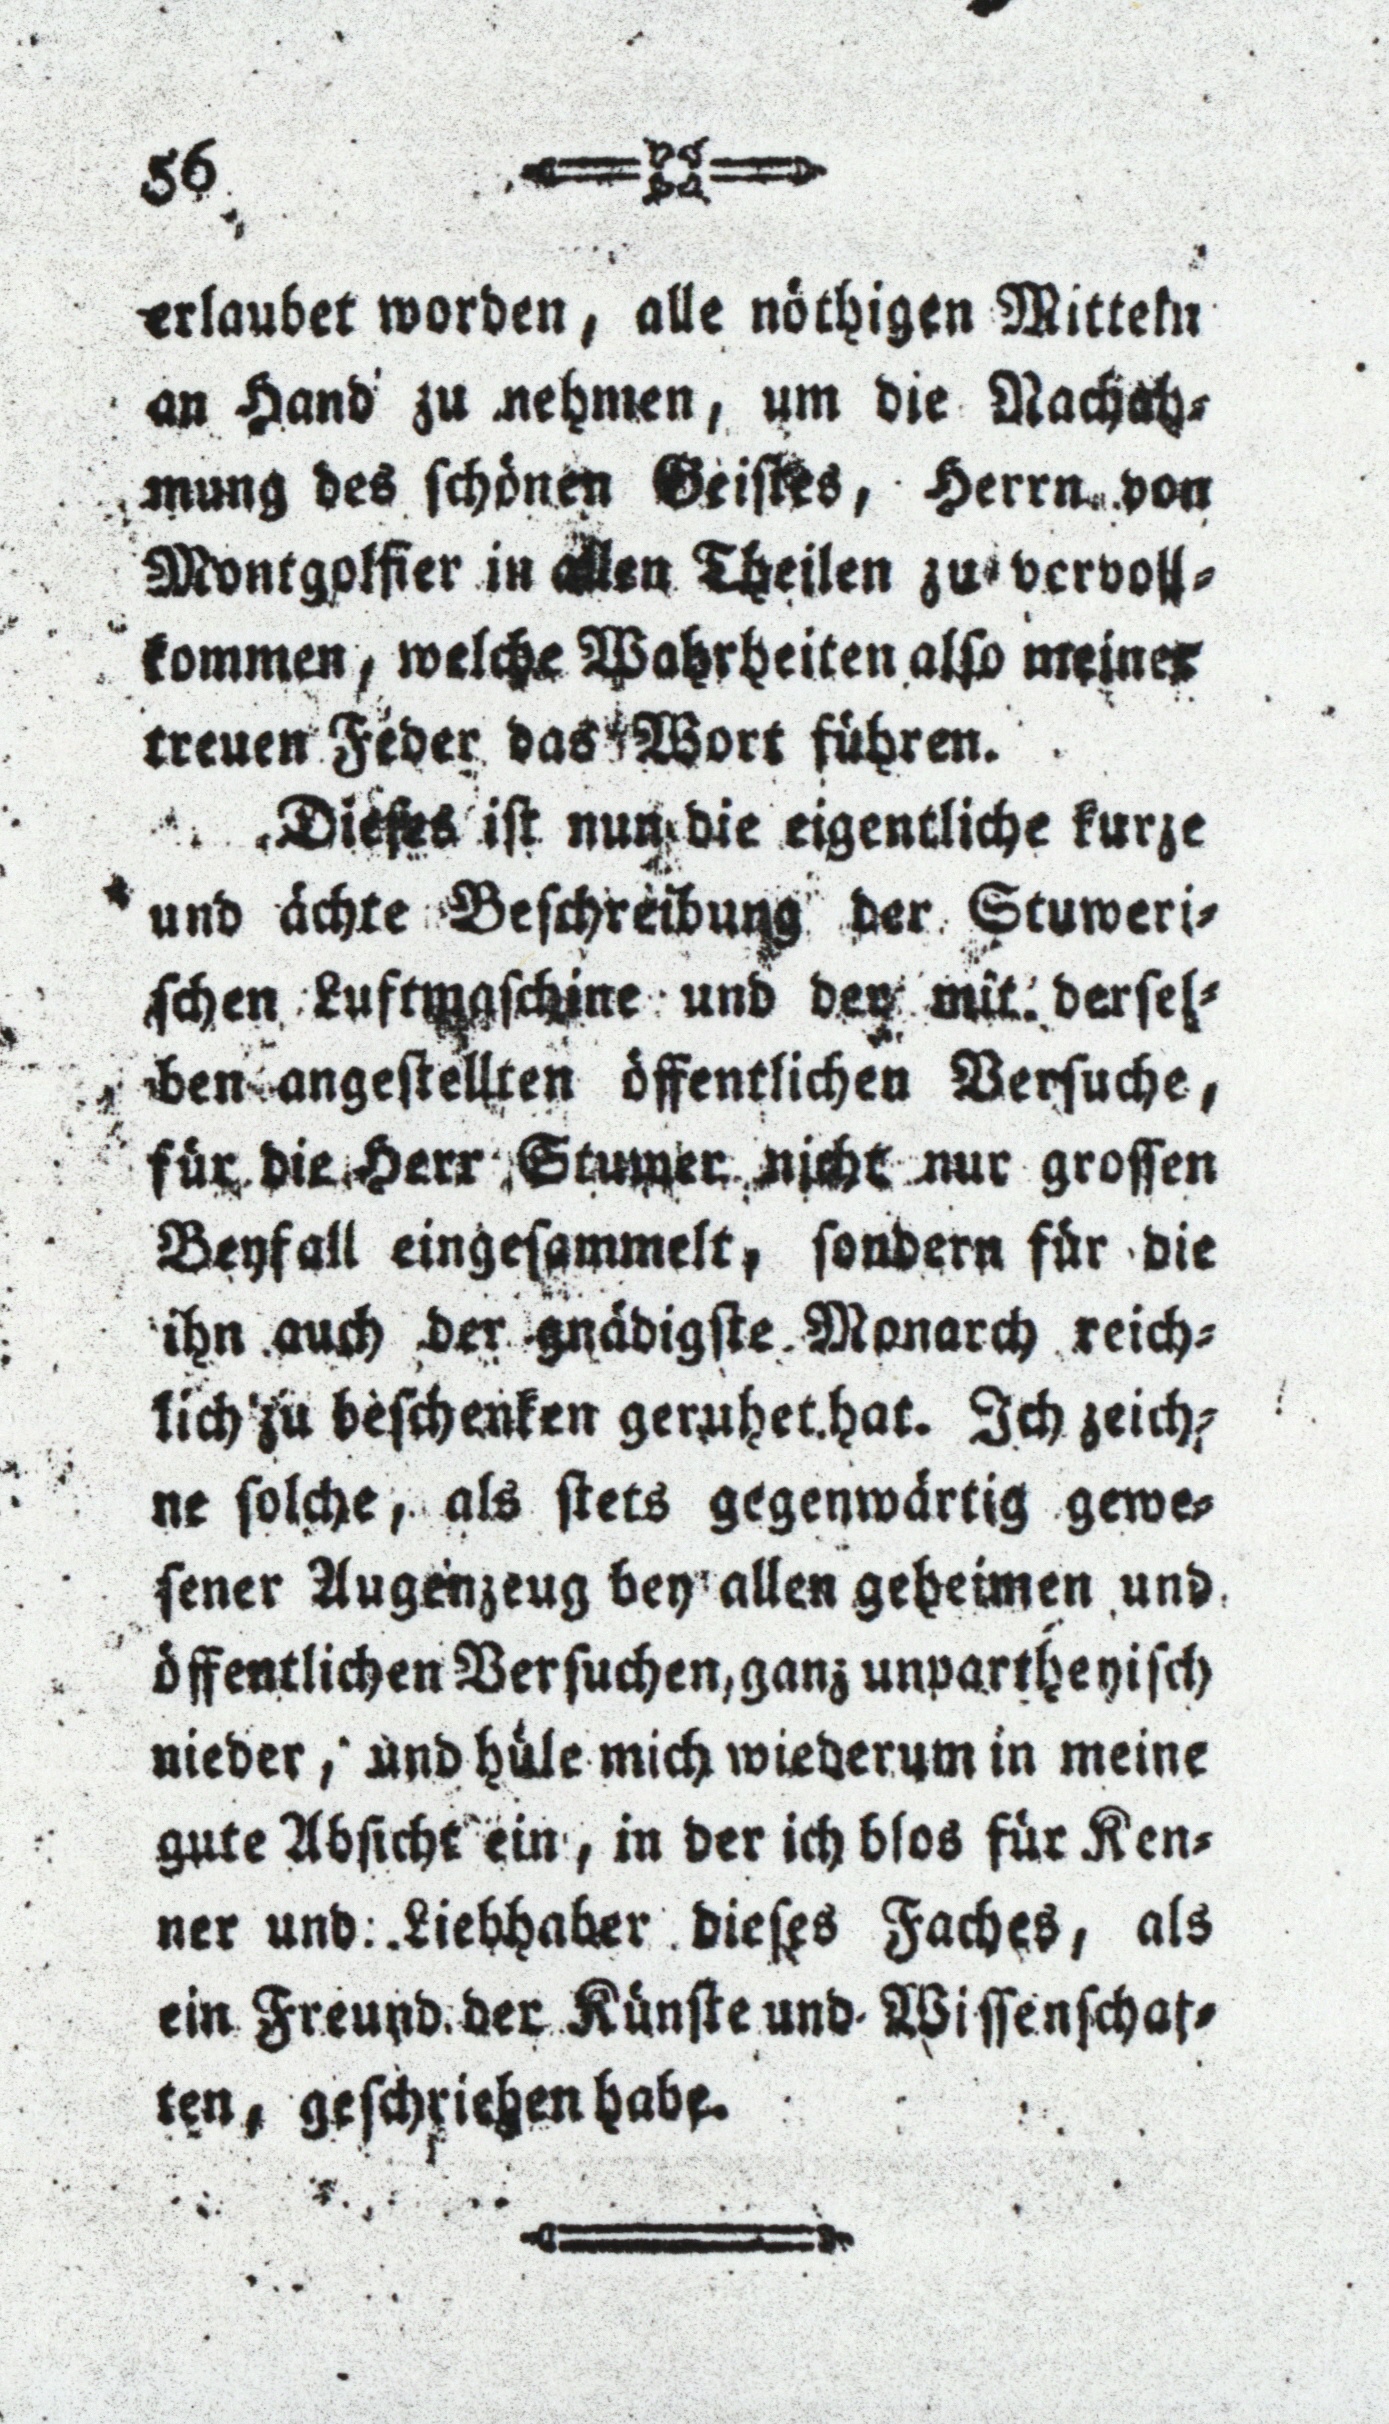 56
erlaubet worden, alle nöthigen Mitteln
an Hand zu nehmen, um die Nachah-
mung des schönen Geistes, Herrn von
Montgolfier in allen Theilen zu vervoll-
kommen, welche Wahrheiten also meiner
treuen Feder das Wort führen.
Dieses ist nun die eigentliche kurze
und ächte Beschreibung der Stuweri-
schen Luftmaschine und der mit dersel-
ben angestellten öffentlichen Versuche,
für die Herr Stuwer nicht nur grossen
Beyfall eingesammelt, sondern für die
ihn auch der gnädigste Monarch reich-
lich zu beschenken geruhet hat. Ich zeich-
ne solche, als stets gegenwärtig gewe-
sener Augenzeug bey allen geheimen und
öffentlichen Versuchen, ganz unpartheyisch
nieder, und hüle mich wiederum in meine
gute Absicht ein, in der ich blos für Ken-
ner und Liebhaber dieses Faches, als
ein Freund der Künste und Wissenschaf-
ten, geschrieben habe.